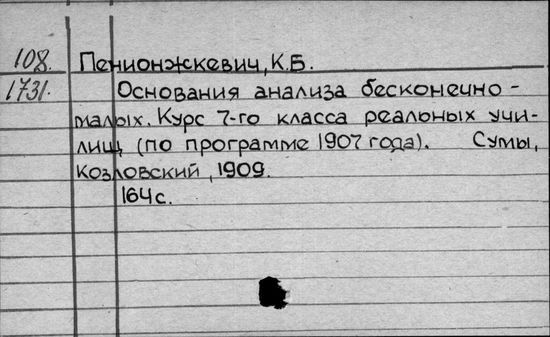 108. Пенионжкевич, К.Б.
1731. Основания анализа бесконечно-
малых. Курс 7-го класса реальных учи-
лищ (по программе 1907 года). Сумы,
Козловский, 1909.
164с.